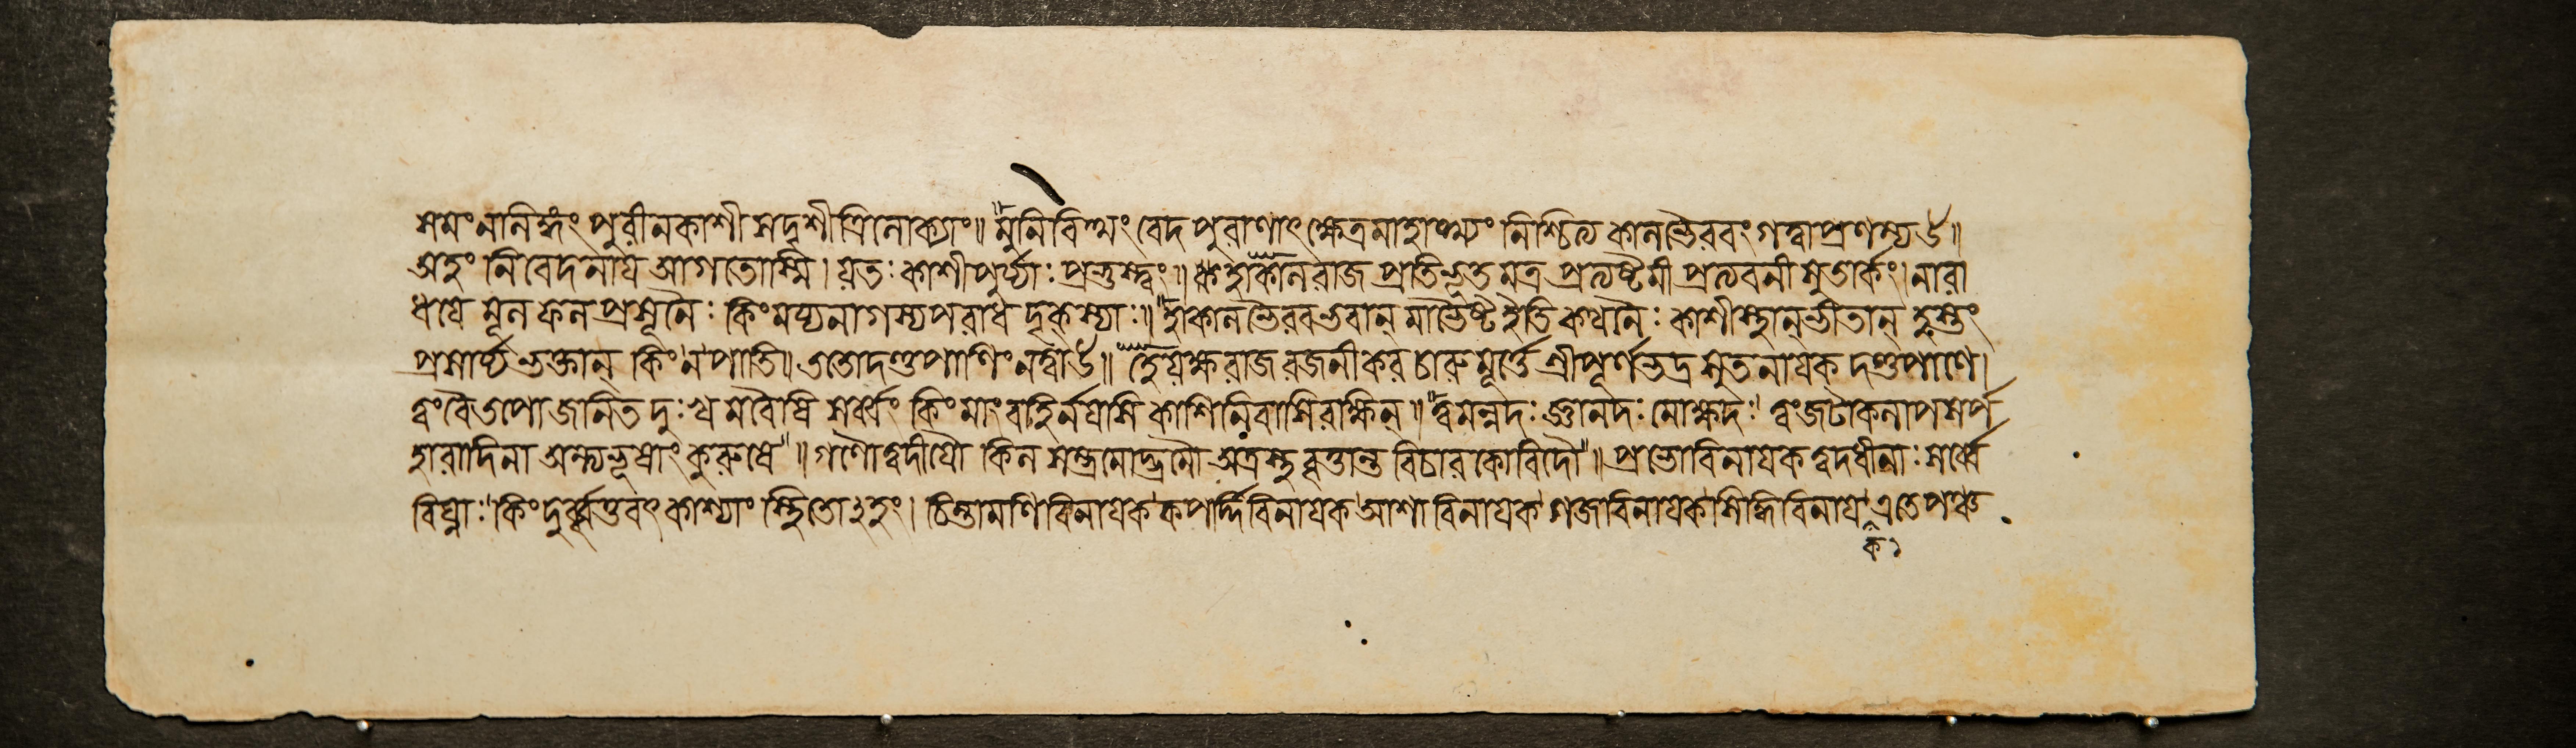 সমং ন লিঙ্গং পুরী ন কাশী সদৃশী ত্রিলোক্যাং॥ মুনিৰ্বিশ্মং বেদ পুরাণাৎ ক্ষেত্রমাহাত্ম্যং নিশ্চিত্য কালভৈরবং গত্বা প্রণম্য৬॥
অহং নিবেদনায় আগতোস্মি। যতঃ কাশীপুর্য্যাঃ প্রভুস্ত্বং॥ হা কালরাজ প্রতিভূত মত্র প্রত্যষ্টমী প্রত্যবনী সুতার্কং। নারা
ধয়ে মূল ফল প্রসূনৈঃ কিং ময্যনাগস্যপরাধ দৃক্ স্যাঃ॥ হা কালভৈরব ভবান্ মাভৈষ্টেতি কথনৈঃ কাশীস্থান্ ভীতান্ হস্তং
প্রসার্য্য ভক্তান্ কিং ন পাতি॥ ততো দণ্ডপাণিং নত্বা৬॥ হে যক্ষরাজ রজনীকর চারু মূর্ত্তে শ্রীপূর্ণভদ্র সুত নায়ক দণ্ডপাণে।
ত্বং বৈ তপো জনিত দুঃখ মবৈষি সর্ব্বং কিং মাং বহির্নয়সি কাশিনিবাসিরক্ষিন্॥ ত্বমন্নদঃ জ্ঞানদঃ মোক্ষদঃ ত্বং জটাকলাপ সর্প
হারাদিনা অন্ত্যভূষাং কুরুষে॥ গণৌ ত্বদীয়ৌ কিল সম্ভ্রমোদ্ভ্রমৌ অত্রস্থ বৃত্তান্ত বিচার কোবিদৌ॥ প্রভো বিনায়ক ত্বদধীনাঃ সর্ব্বে
বিঘ্নাঃ কিং দুর্ব্বৃত্তবৎ কাশ্যাং স্থিতোঽহং। চিন্তামণি বিনায়ক কপর্দ্দি বিনায়ক আশা বিনায়ক গজবিনায়ক সিদ্ধি বিনায় এতে পঞ্চ
ক